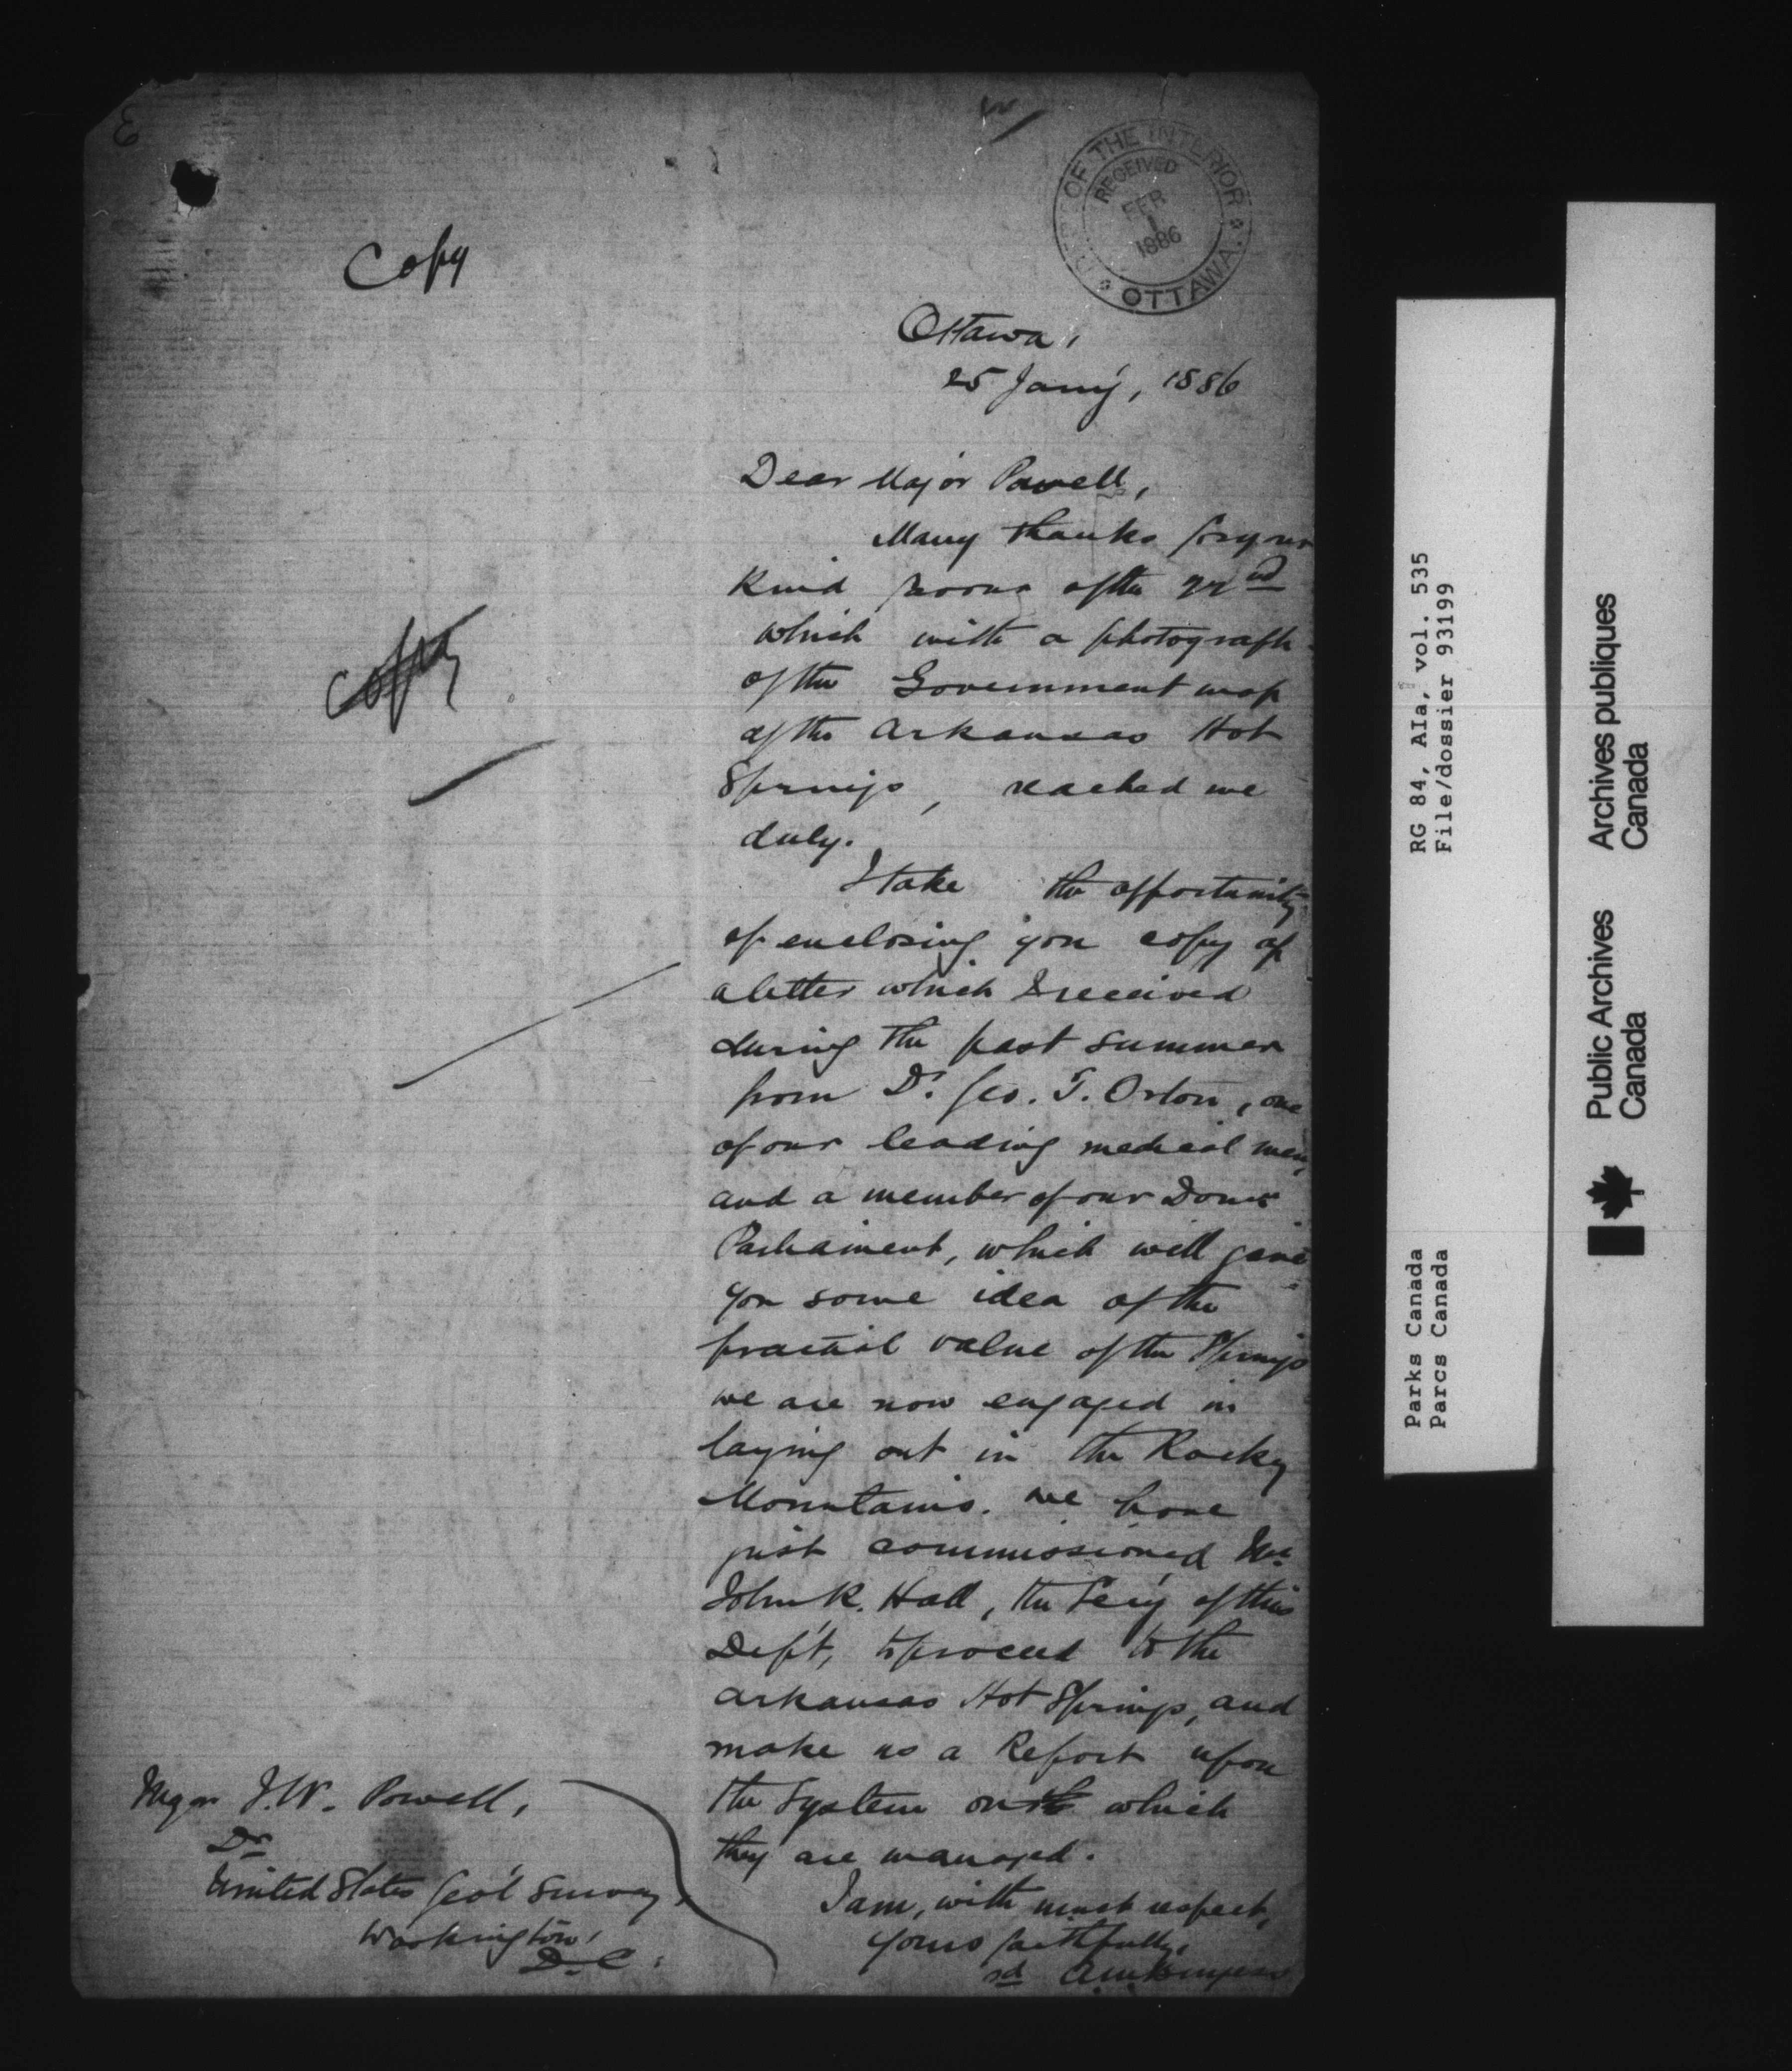 3
DEPT OF THE INTERIOR
RECEIVED
FEB
1
1886
OTTAWA
Copy
Ottawa,
25 Jany, 1886
Dear Major Powell,
Many thanks for your
kind of the 22nd
which with a photograph
of the Government map
of the Arkansas Hot
Springs, reached me
duly.
Copy
I take the opportunity
of enclosing you copy of
a letter which I received
during the past summer
from Dr. Geo. T. Orton, one
of our leading medical men,
and a member of our Domn
Parliament, which will give
you some idea of the
practical value of the Springs
we are now engaged in
laying out in the Rocky
Mountains. We have
just commissioned Mr
John R. Hall, the Secy of this
Dep't, to proceed to the
Arkansas Hot Springs, and
make us a Report upon
the System on which
they are managed.
I am, with much respect,
yours faithfully,
sd
Major J.W. Powell,
Dr
United States Geol Survey,
Washington,
D.C.
RG 84, AIa, vol. 535
File/dossier 93199
Parks Canada
Parcs Canada
Public Archives
Canada
Archives publiques
Canada